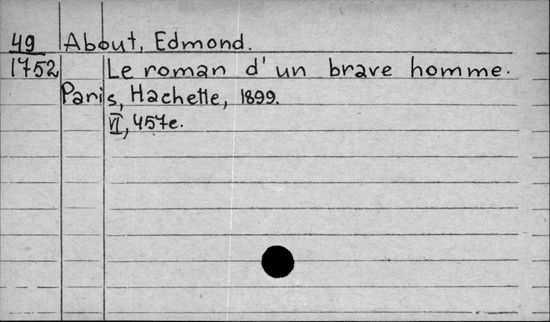 49 About, Edmond.
1752 Le roman d'un brave homme.
Paris, Hachette, 1899.
VI, 457e.